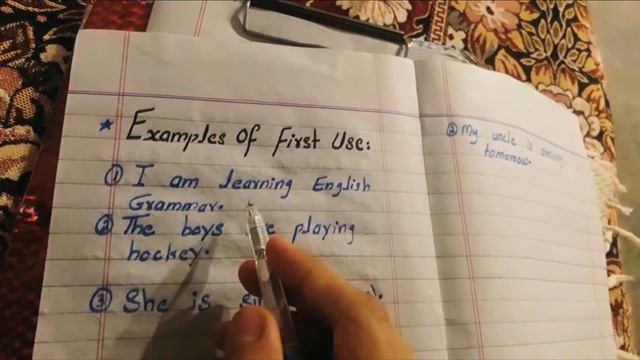 ★ Examples Of First Use:
① I am learning English
Grammar.
② The boys playing
hockey.
③ She is
② My uncle is
tomorrow.